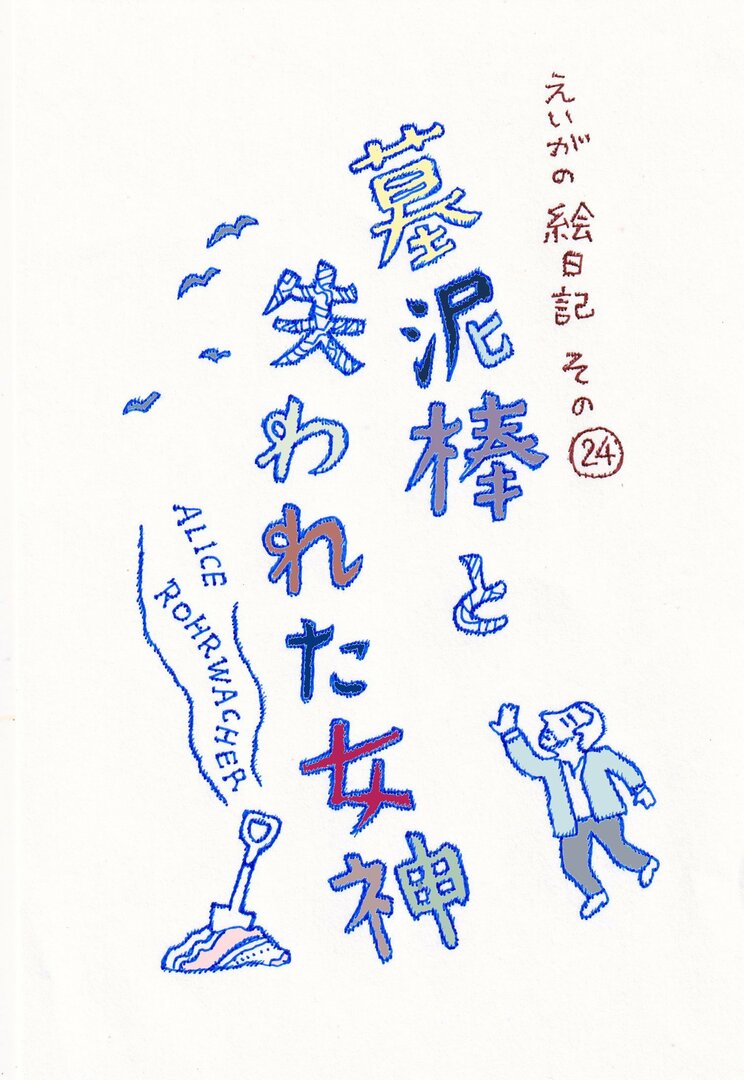 えいがの絵日記 その㉔
墓泥棒と
失われた女神
ALICE
ROHRWACHER